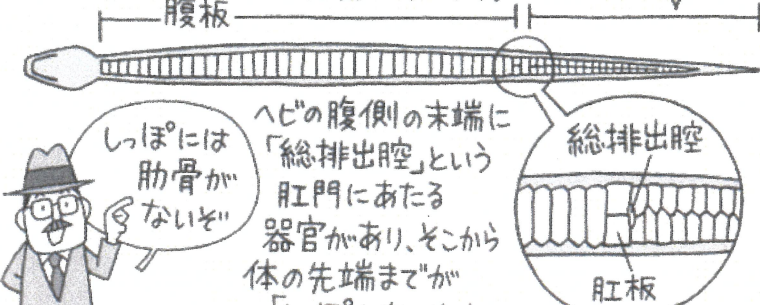 腹板
しっぽには
肋骨が
ないぞ
ヘビの腹側の末端に
「総排出腔」という
肛門にあたる
器官があり、そこから
体の先端までが
総排出腔
肛板